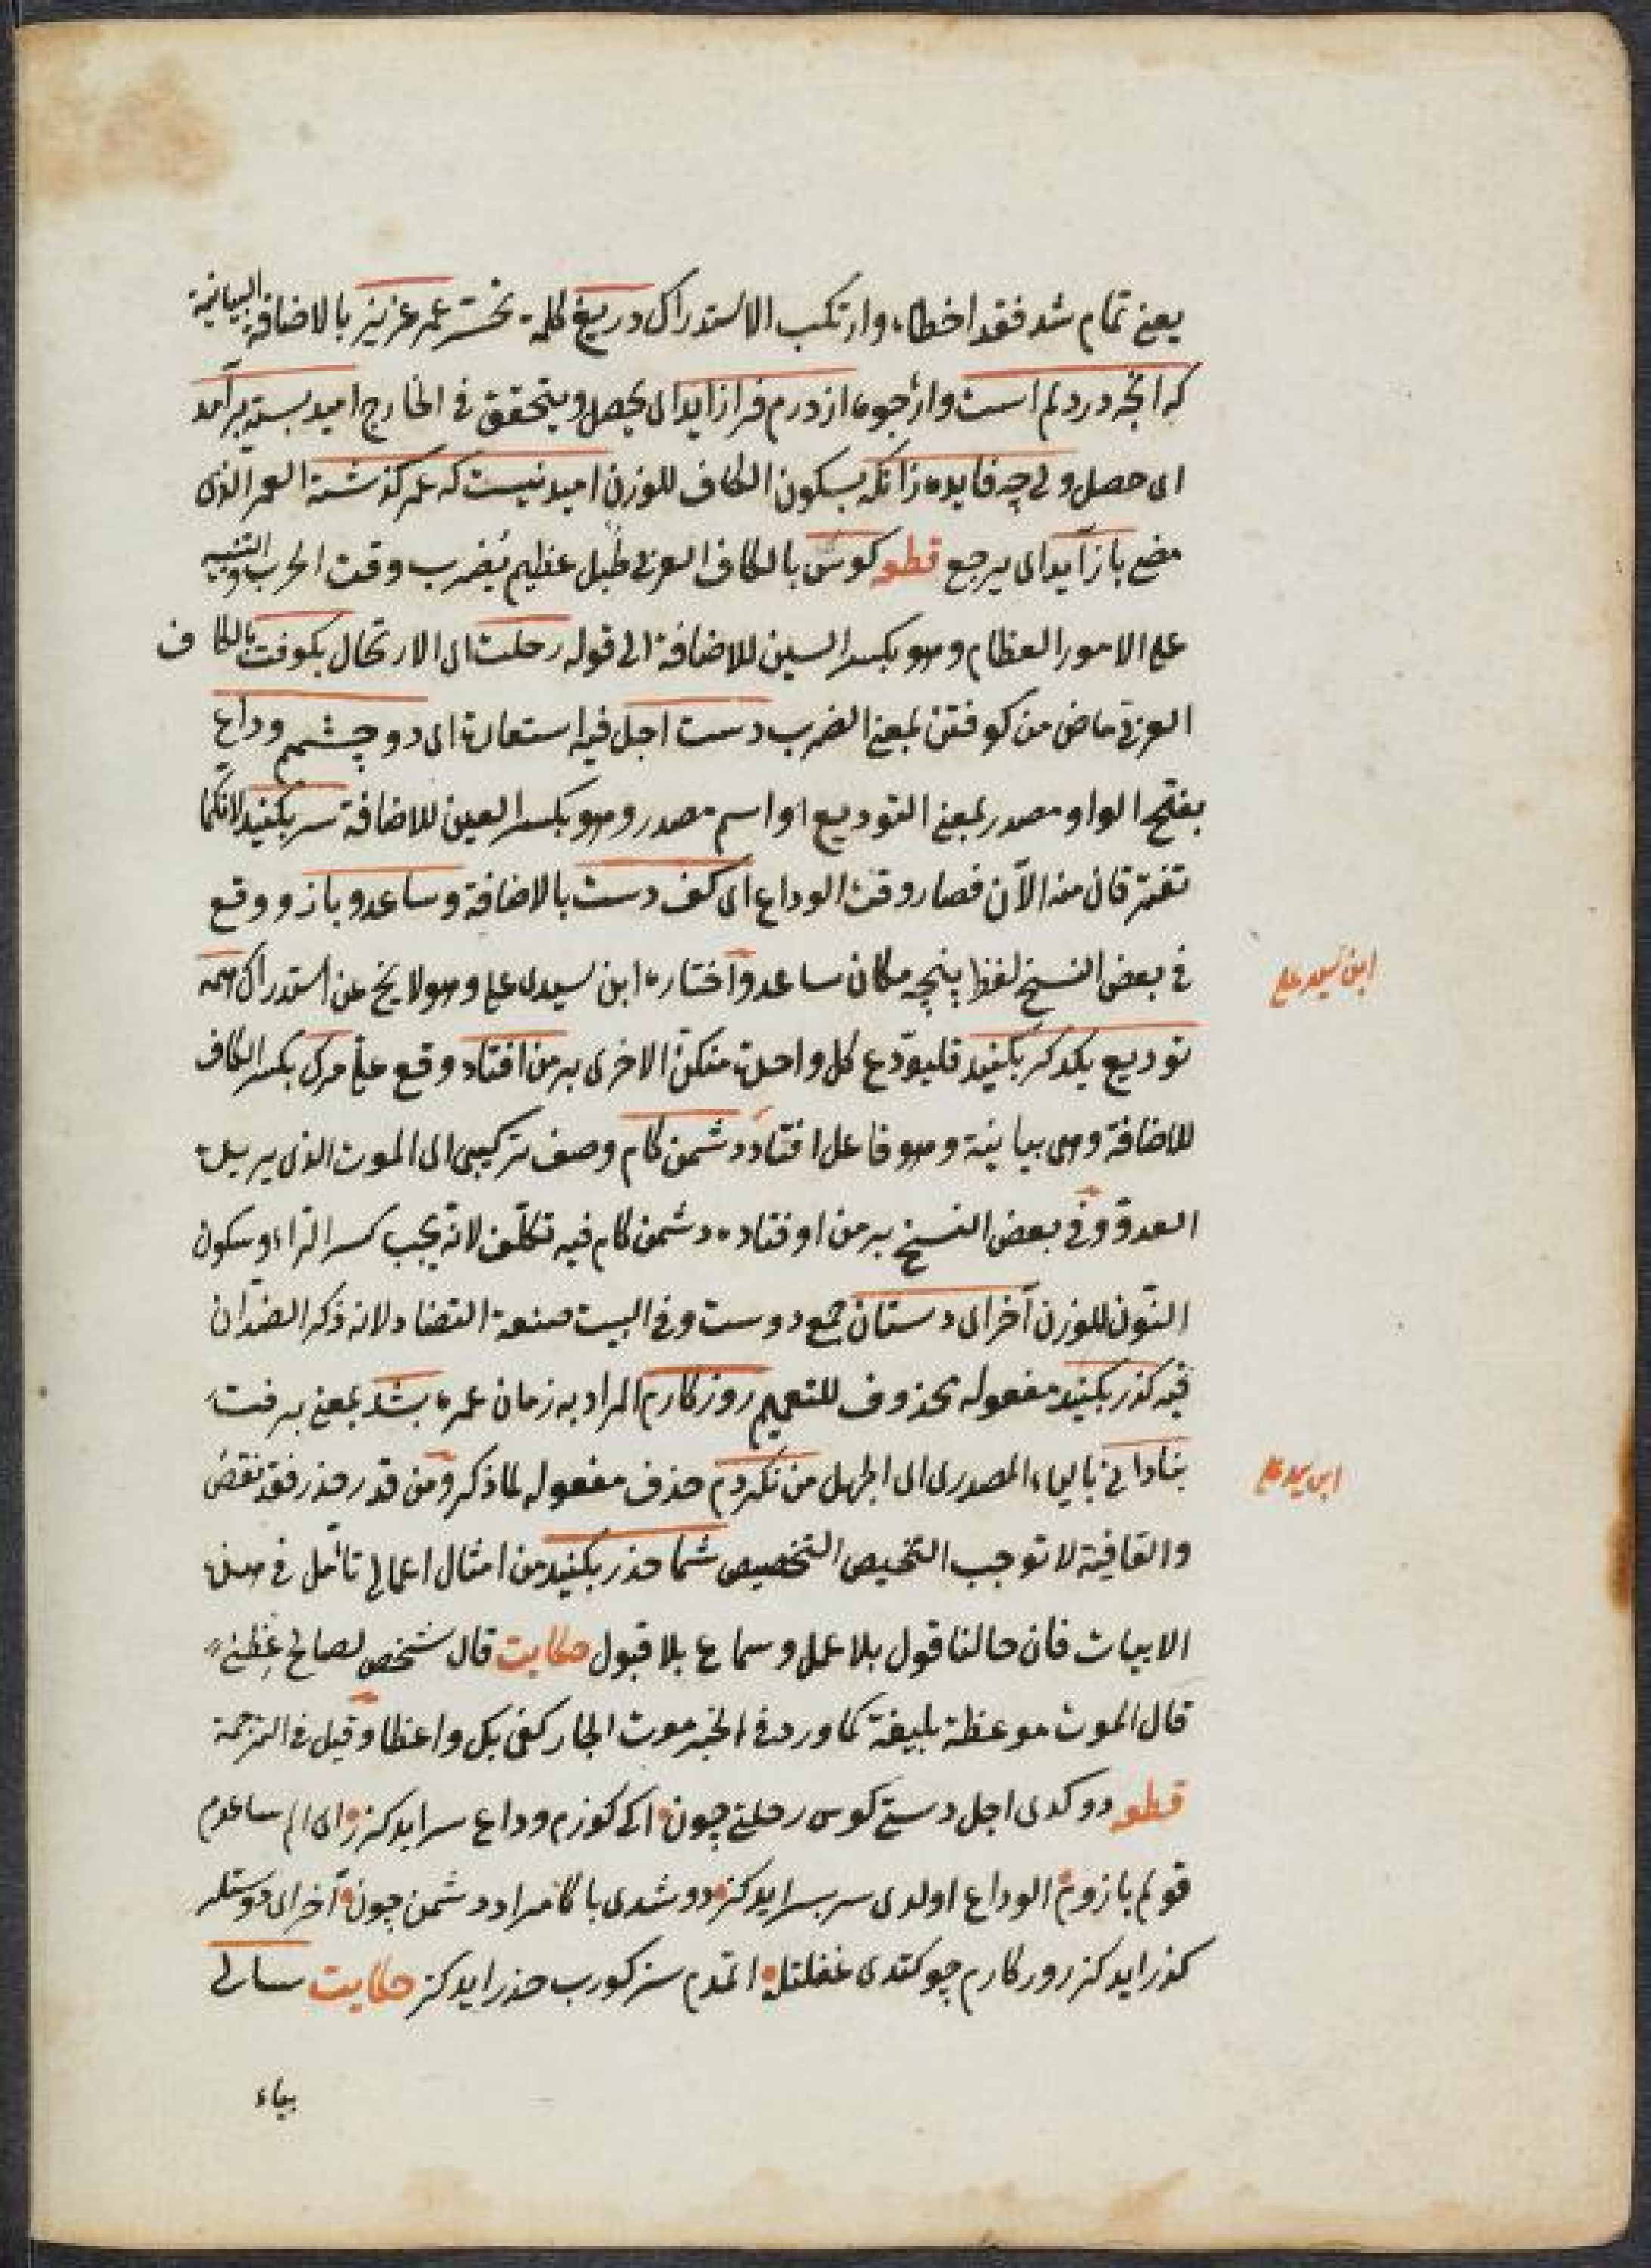 يعنى تمام شد فقد اخطاء وارتكب الاستدراك دريغ كلمة تحسّر عمر عزيز بالاضافة البيانية
كه انچه در دلم است وارجوه از درم فراز آيد اى يحصل ويتحقق فى الخارج اميد بسته برآمد
اى حصل ولى چه فايده زانكه بسكون الكاف للوزن اميد نيست كه عمر كذشته العمر الذى
مضى باز آيد اى يرجع قطعه كوس بالكاف العربى طبل عظيم يُضرب وقت الحرب والتنبيه
على الامور العظام وهو بكسر السين للاضافة الى قوله رحلت اى الارتحال بكوفت بالكاف
العربى ماض من كوفتن بمعنى الضرب دست اجل فيه استعارة اى دو چشمم وداع
بفتح الواو مصدر بمعنى التوديع او اسم مصدر وهو بكسر العين للاضافة سر بكنيد لانكما
تفترقان منه الآن فصار وقت الوداع اى كف دست بالاضافة وساعد وبازو ووقع
فى بعض النسخ لفظ پنچه مكان ساعد واختاره ابن سيدى على وهو لا يخ عن استدراك همه
توديع يكدكر بكنيد فليودّع كل واحدة منكنّ الاخرى بر من افتاد وقع علىّ مرك بكسر الكاف
للاضافة وهى بيانية وهو فاعل افتاد دشمن كام وصف تركيبى اى الموت الذى يريده
العدوّ وفى بعض النسخ بر من اوفتاده دشمن كام فيه تكلّف لانه يجب كسر الراء وسكون
النّون للوزن آخر اى دستان جمع دوست وفى البيت صنعة التضاد لانه ذكر الضدّان
فيه كذر بكنيد مفعوله محذوف للتعميم روزكارم المراد به زمان عمره بشد بمعنى برفت
بنادانى بالياء المصدرى اى الجهل من نكردم حذف مفعوله لما ذكر ومن قدر حذر فقد نقض
والقافية لا توجب التخيص التخصيص شما حذر بكنيد من امثال اعمالى تأمّل فى هذه
الابيات فان حالنا قول بلا عمل وسماع بلا قبول حكايت قال شخص لصالح عِظْنى
قال الموت موعظة بليغة كما ورد فى الخبر موت الجار كفى بكل واعظا وقيل فى الترجمة
قطعه دوكدى اجل دستى كوس رحلتى چون اكى كوزم وداع سر ايدكز اى الم ساعدم
قولم بازوم الوداع اولدى سر بسر ايدكز دوشدى باكا مراد دشمن چون آخر اى دوستلر
كذر ايدكز روزكارم چو كتدى غفلتله اتمدم سز كورب حذر ايدكز حكايت سالى
بياء
ابن سيد على
ابن سيد على